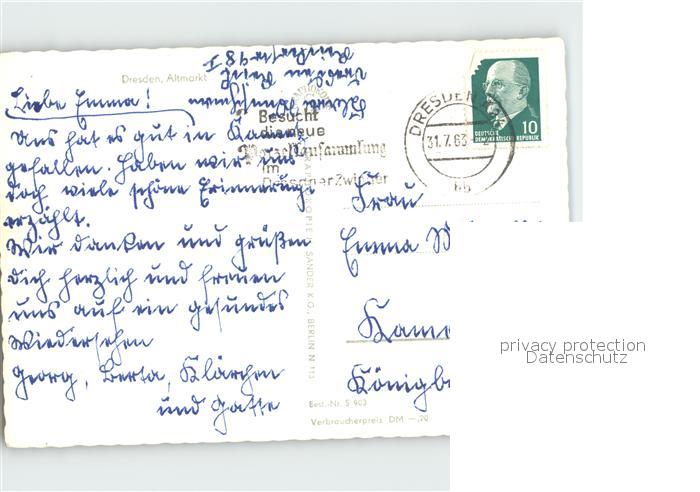 Dresden, Altmarkt
Liebe Emma!
Uns hat es gut in Kamenz
gefallen. Haben wir uns
doch viele schöne Erinnerungen
erzählt.
Wir danken und grüßen
Dich herzlich und freuen
uns auf ein gesundes
Wiedersehen
Georg, Berta, Klärchen
und Gatte
Besucht
die neue
Porzellansammlung
im
Dresdner Zwinger
DRESDEN
31.7.63
bb
DEUTSCHE
DEMOKRATISCHE REPUBLIK
10
Frau
Emma
Kame
Königb
SANDER K.G., BERLIN N 113
Best.-Nr. S 903
Verbraucherpreis DM —,20
privacy protection
Datenschutz